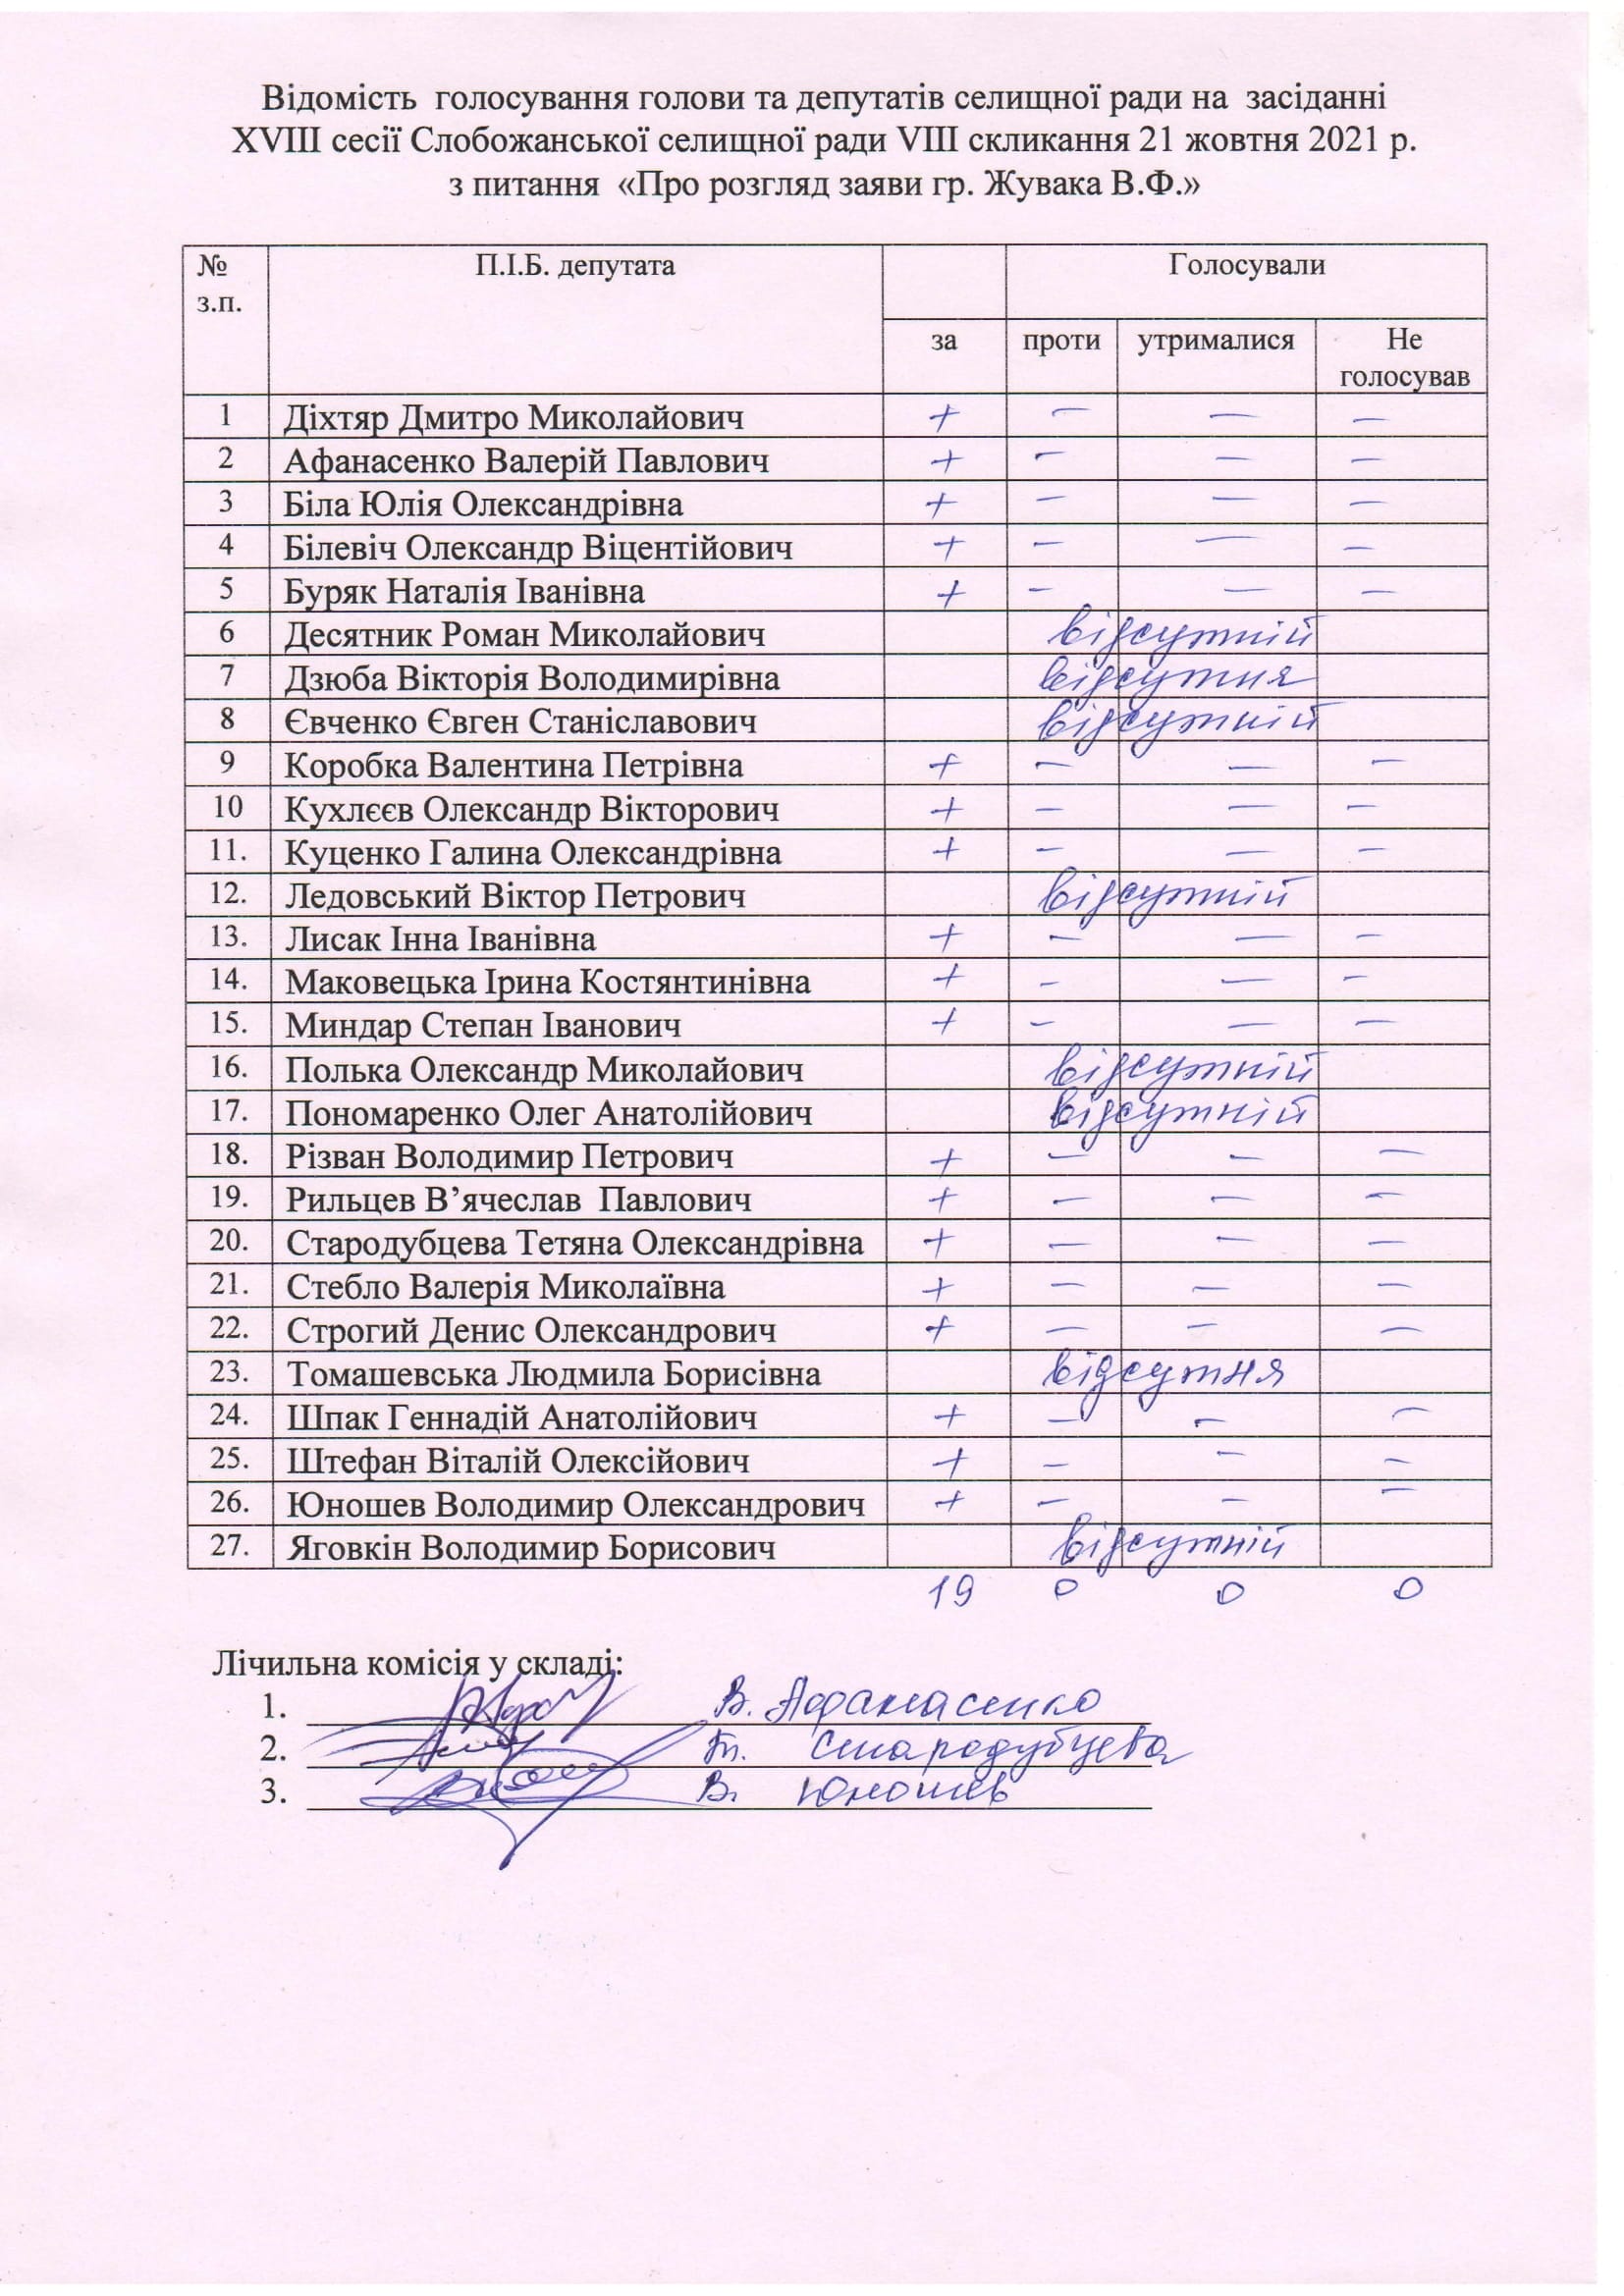 Відомість голосування голови та депутатів селищної ради на засіданні
XVIII сесії Слобожанської селищної ради VIII скликання 21 жовтня 2021 р.
з питання «Про розгляд заяви гр. Жувака В.Ф.»
№ з.п. П.І.Б. депутата Голосували
за проти утрималися Не голосував
1 Діхтяр Дмитро Миколайович + – – –
2 Афанасенко Валерій Павлович + – – –
3 Біла Юлія Олександрівна + – – –
4 Білевіч Олександр Віцентійович + – – –
5 Буряк Наталія Іванівна + – – –
6 Десятник Роман Миколайович відсутній
7 Дзюба Вікторія Володимирівна відсутня
8 Євченко Євген Станіславович відсутній
9 Коробка Валентина Петрівна + – – –
10 Кухлєєв Олександр Вікторович + – – –
11. Куценко Галина Олександрівна + – – –
12. Ледовський Віктор Петрович відсутній
13. Лисак Інна Іванівна + – – –
14. Маковецька Ірина Костянтинівна + – – –
15. Миндар Степан Іванович + – – –
16. Полька Олександр Миколайович відсутній
17. Пономаренко Олег Анатолійович відсутній
18. Різван Володимир Петрович + – – –
19. Рильцев В’ячеслав Павлович + – – –
20. Стародубцева Тетяна Олександрівна + – – –
21. Стебло Валерія Миколаївна + – – –
22. Строгий Денис Олександрович + – – –
23. Томашевська Людмила Борисівна відсутня
24. Шпак Геннадій Анатолійович + – – –
25. Штефан Віталій Олексійович + – – –
26. Юношев Володимир Олександрович + – – –
27. Яговкін Володимир Борисович відсутній
19 0 0 0
Лічильна комісія у складі:
1. В. Афанасенко
2. Т. Стародубцева
3. В. Юношев